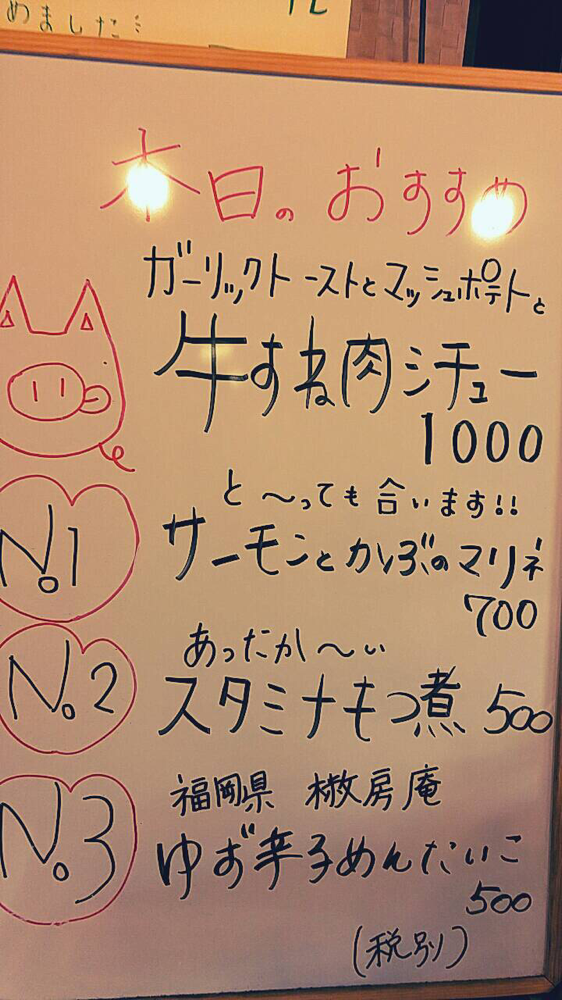 めました
本日のおすすめ
ガーリックトーストとマッシュポテトと
牛すね肉シチュー
1000
と〜っても合います!!
No.1
サーモンとかぶのマリネ
700
あったか〜い
No.2
スタミナもつ煮 500
福岡県 椒房庵
No.3
ゆず辛子めんたいこ
500
(税別)